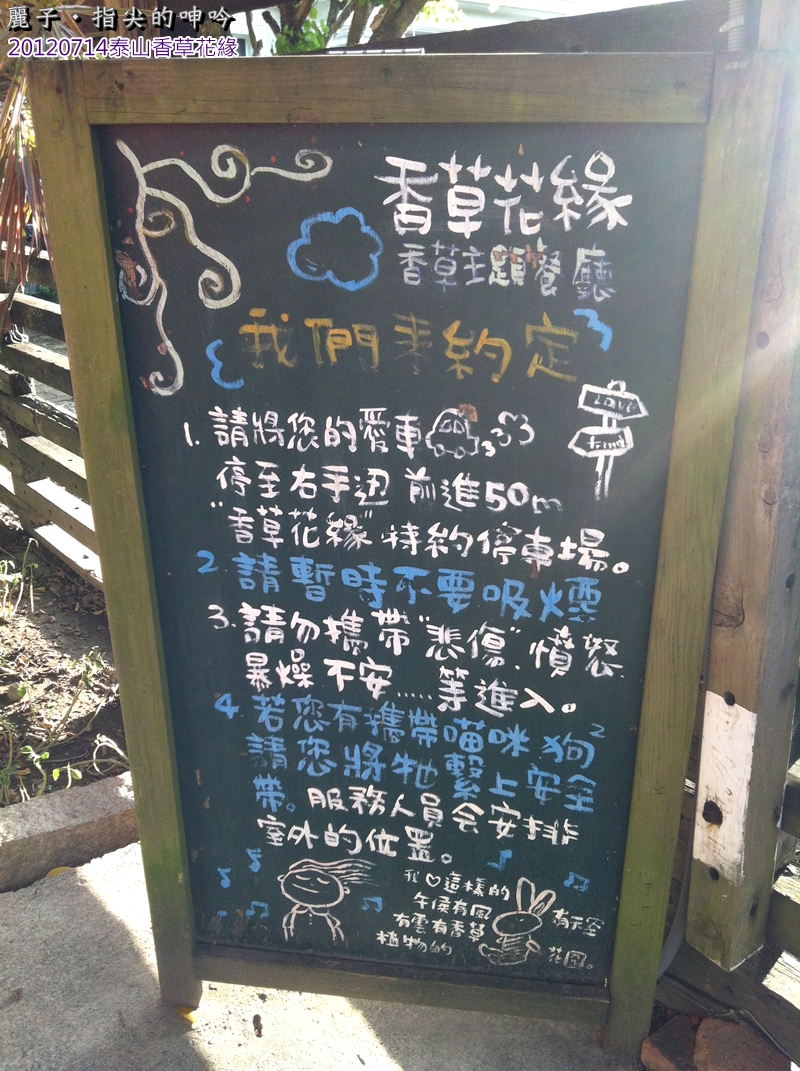 麗子•指尖的呻吟
20120714泰山香草花緣
香草花緣
香草主題餐廳
我們來約定
Love
friend
1. 請將您的愛車
停至右手边 前進50m
"香草花緣"特約停車場。
2. 請暫時不要吸煙
3. 請勿攜帶"悲傷"、憤怒
暴燥 不安.....等進入。
4. 若您有攜帶喵咪 狗2
請您將牠繫上安全
帶。服務人員会安排
室外的位置。
我♡這樣的
午後有風
有雲有香草
植物的
有天空
花園。